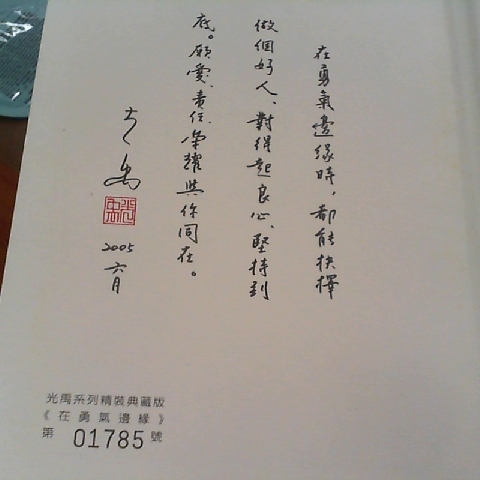 在勇氣邊緣時，都能抉擇
做個好人、對得起良心、堅持到
底。願愛、責任、榮耀與你同在。
光禹
2005
六月
光禹系列精裝典藏版
《在勇氣邊緣》
第01785號